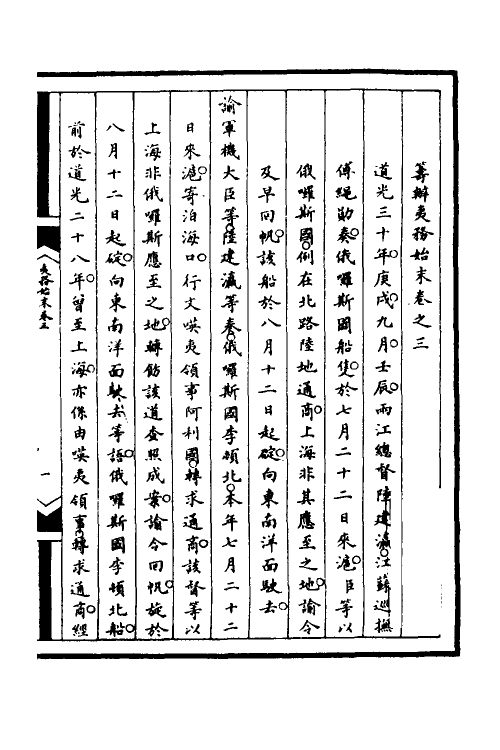 籌辦夷務始末卷之三
道光三十年庚戌九月壬辰兩江總督陸建瀛江蘇巡撫
傅繩勛奏俄囉斯國船隻於七月二十二日來滬臣等以
俄囉斯國例在北路陸地通商上海非其應至之地諭令
及早回帆該船於八月十二日起碇向東南洋面駛去
諭軍機大臣等陸建瀛等奏俄囉斯國李頓北本年七月二十二
日來滬寄泊海口行文嘆夷領事阿利國轉求通商該督等以
上海非俄囉斯應至之地轉飭該道查照成案諭令回帆旋於
八月十二日起碇向東南洋面駛去等語俄囉斯國李頓北船
前於道光二十八年曾至上海亦係由嘆夷領事轉求通商經
夷務始末卷三
一